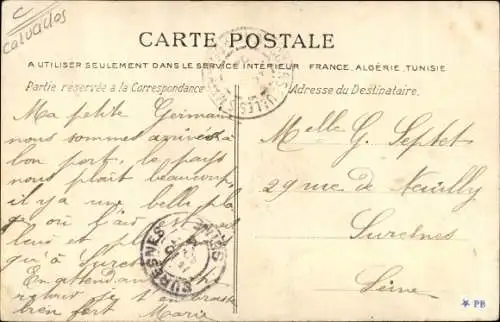 C
Calvados
CARTE POSTALE
A UTILISER SEULEMENT DANS LE SERVICE INTÉRIEUR FRANCE, ALGÉRIE, TUNISIE
Partie réservée à la Correspondance
Adresse du Destinataire.
Ma petite Germaine
nous sommes arrivées à
bon port, le pays
nous plaît beaucoup,
il y a une belle pla
ge où l'air est
leur et plus
à Suresnes
En attendant
retour je t'embrasse
bien fort Marie
Melle G. Septet
29 rue de Neuilly
Suresnes
Seine
SURESNES
SEINE
* PB